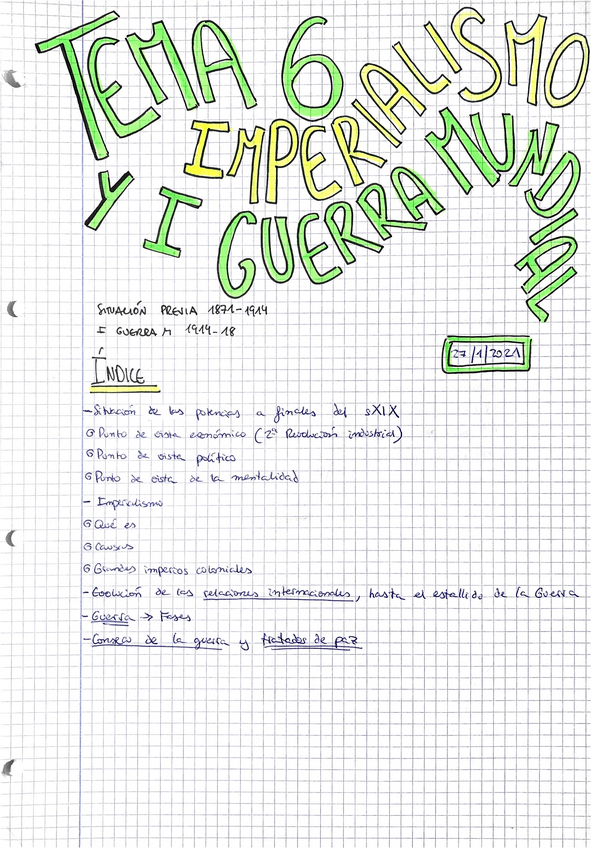 TEMA 6
IMPERIALISMO
Y I GUERRA MUNDIAL
SITUACIÓN PREVIA 1871-1914
I GUERRA M 1914-18
27/1/2021
ÍNDICE
- Situación de las potencias a finales del sXIX
G Punto de vista económico (2ª Revolución industrial)
G Punto de vista político
G Punto de vista de la mentalidad
- Imperialismo
G Qué es
G Causas
G Grandes imperios coloniales
- Evolución de las relaciones internacionales, hasta el estallido de la Guerra
- Guerra → Fases
- Consecu de la guerra y tratados de paz